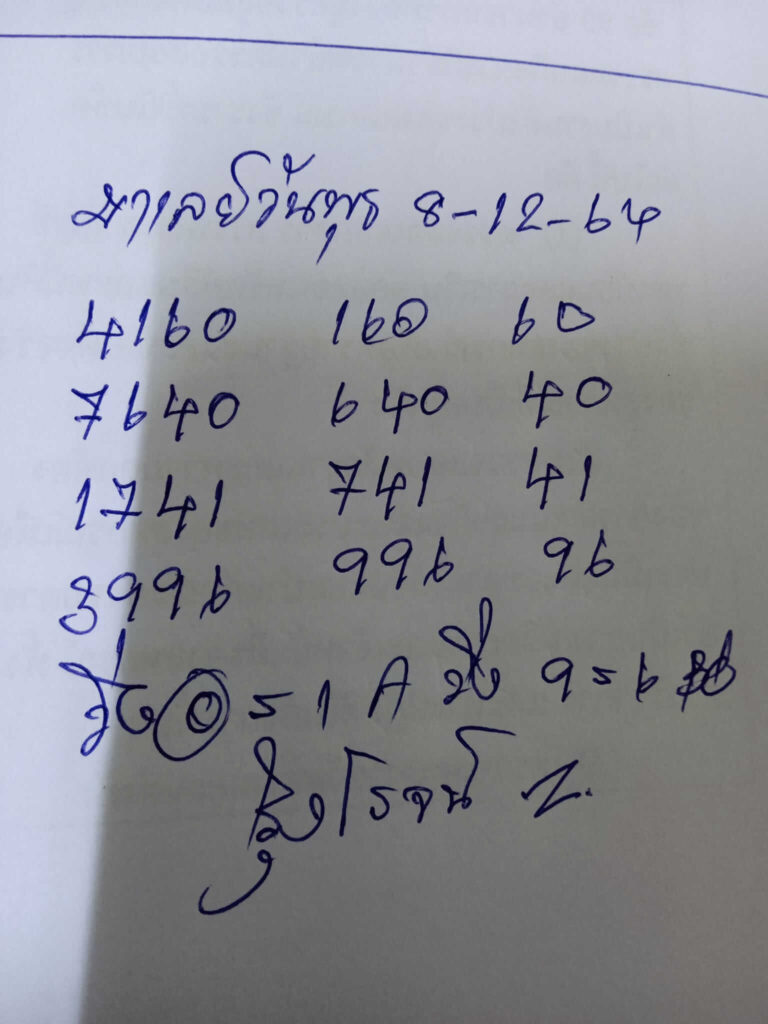 มาเลย์วันพุธ 8-12-64
4160 160 60
7640 640 40
1741 741 41
3996 996 96
วิ่ง 0 = 1 A วิ่ง 9 = 6
รุ่งโรจน์